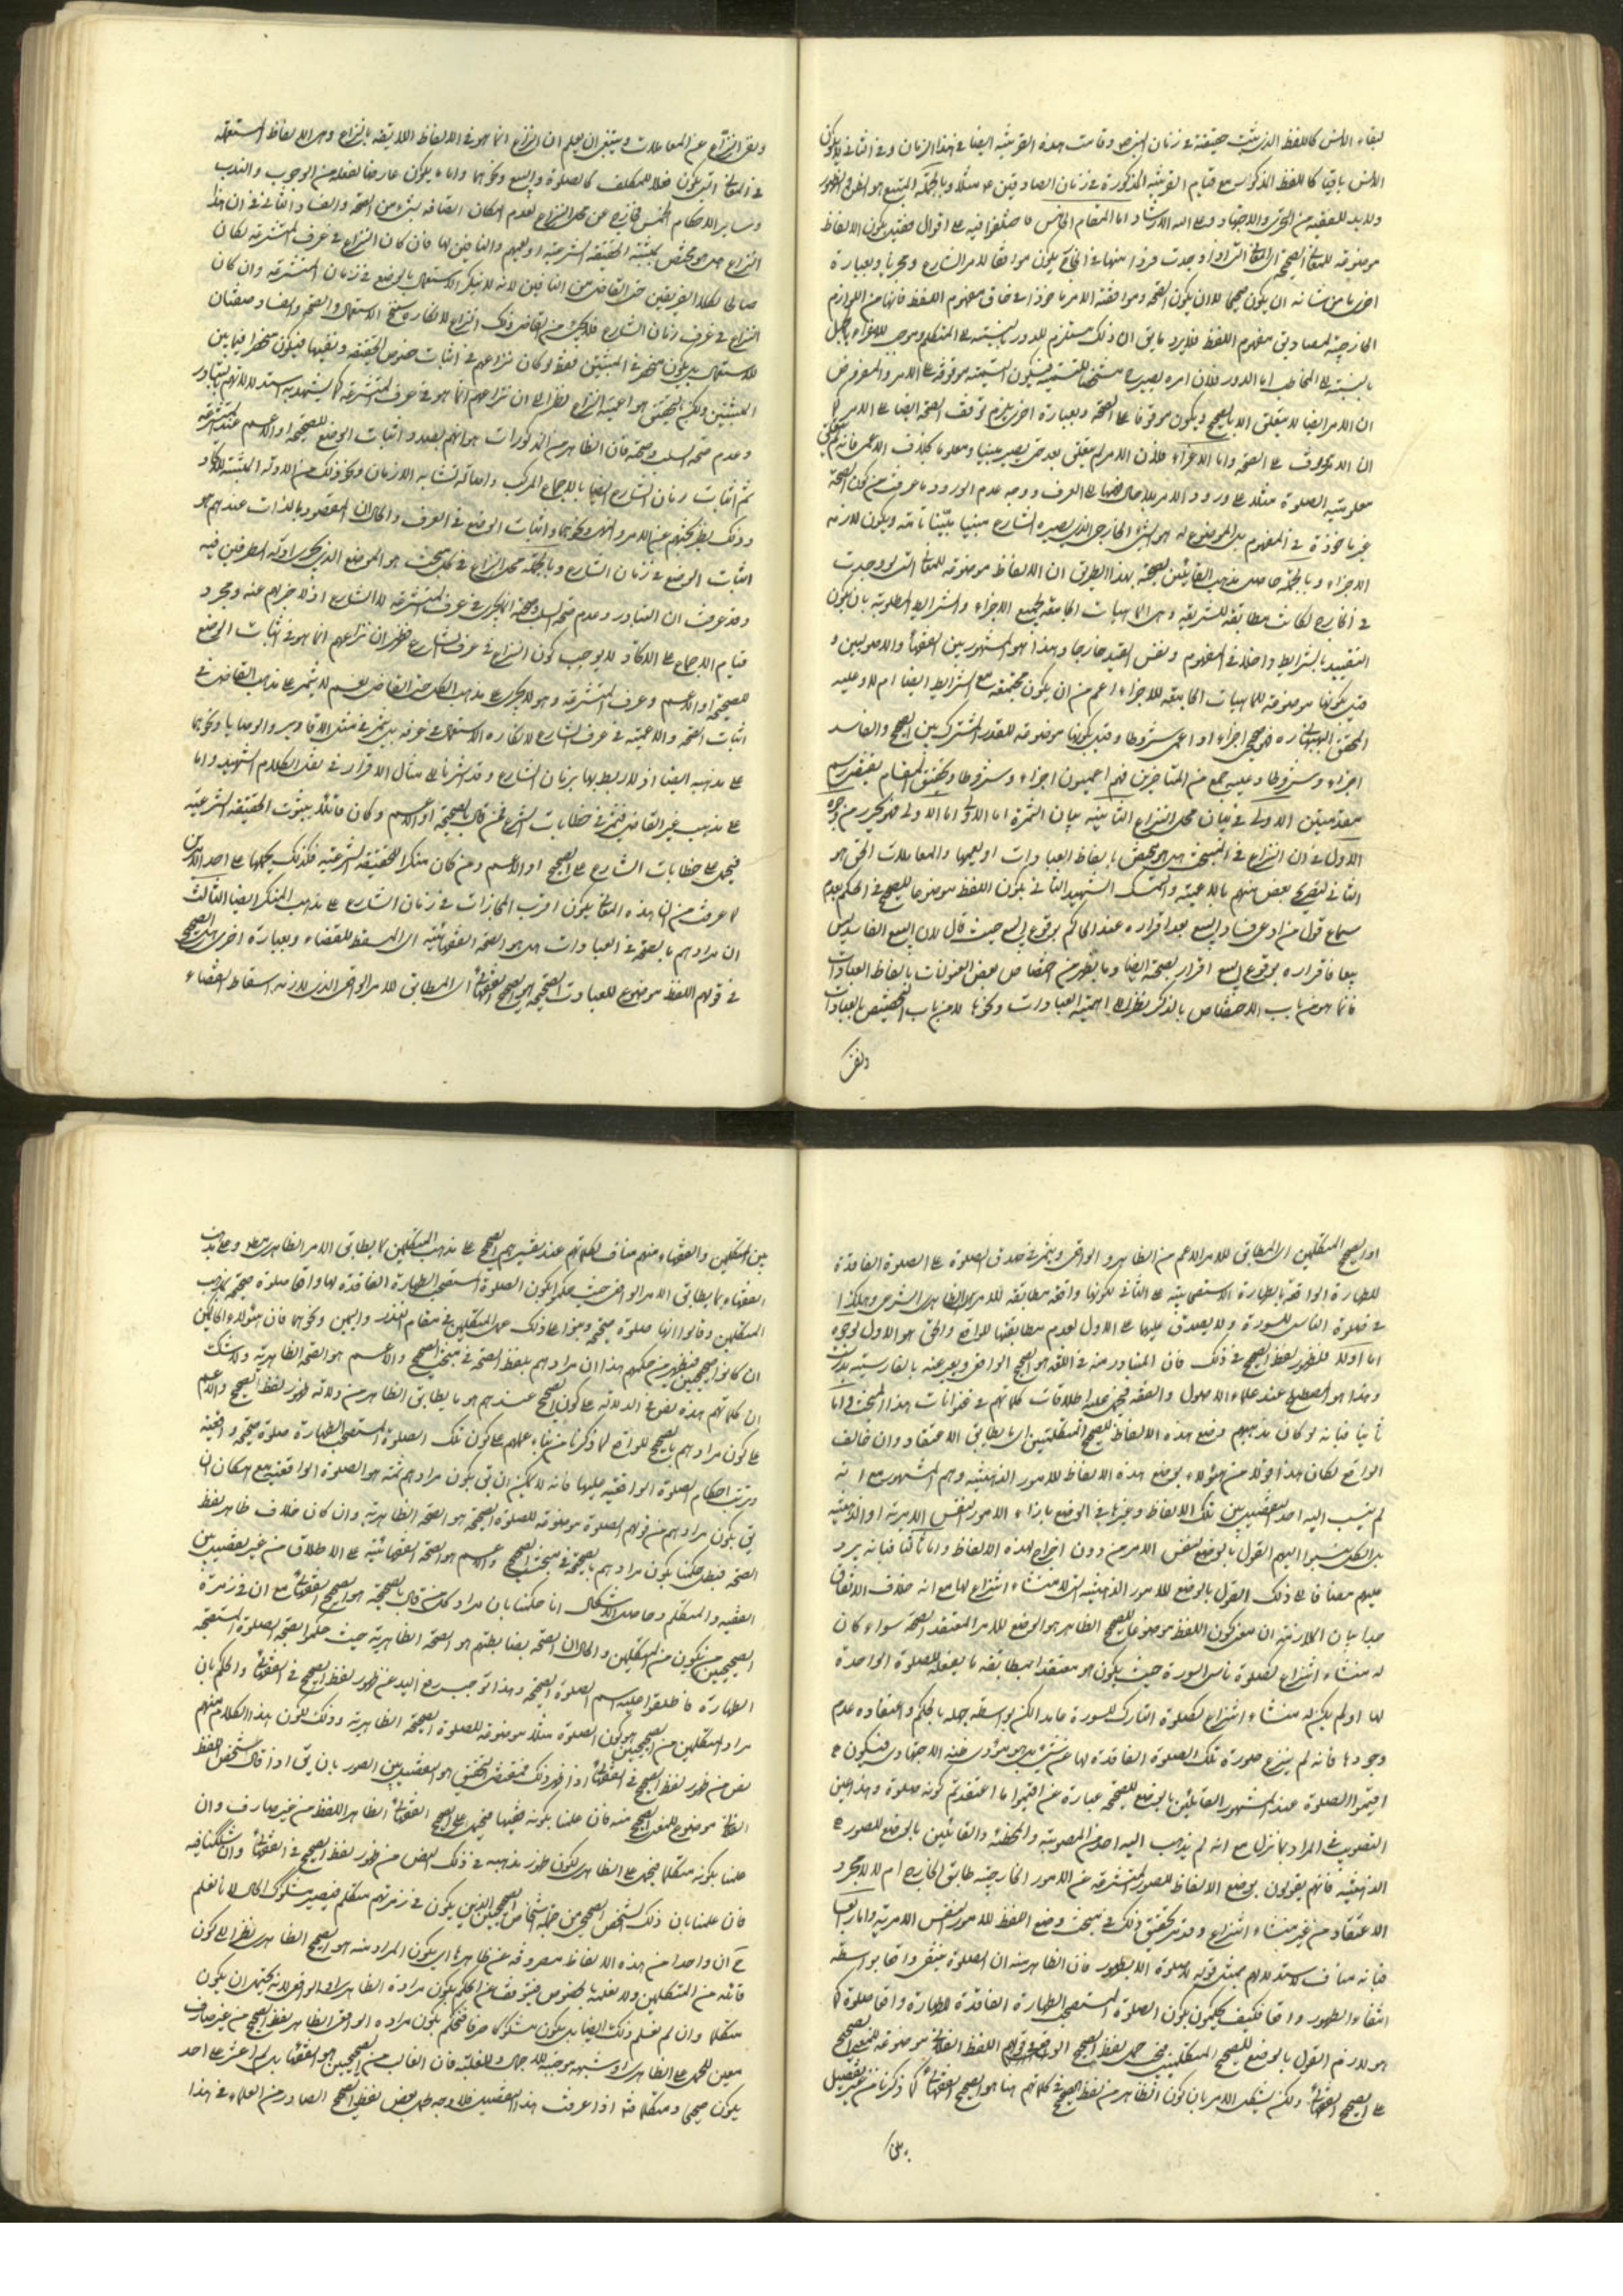 لبقاء الانس كاللفظ الذى يثبت حقيقة فى زمان النبى ص وقامت هذه القرينة ايضا فى هذا الزمان وفى الثانى لا يكون
الانس باقيا كاللفظ المذكور مع قيام القرينة المذكورة فى زمان الصادقين ع مثلا وبالجملة المتبع هو الظن والظهور
ولا بد للفقيه من التحرى والاجتهاد وعلى الله الارشاد اما المقام الخامس فاختلفوا فيه على اقوال فقيل بكون الالفاظ
موضوعة للمعانى الصحيحة اى المعانى التى لو وجدت فردا منها فى الخارج يكون موافقا لامر الشارع ومجزيا وبعبارة
اخرى ما من شانه ان يكون صحيحا لا ان يكون الصحة وموافقة الامر ماخوذا فى حاق مفهوم اللفظ فانها من اللوازم
الخارجية لمصاديق مفهوم اللفظ فلا يرد ما يق ان ذلك مستلزم للدور بالنسبة الى المتكلم وموجب للاغراء بالجهل
بالنسبة الى المخاطب اما الدور فلان امره يصير مشخصا للتسمية فيكون التسمية موقوفة على الامر والمفروض
ان الامر ايضا لا يتعلق الا بالصحيح ويكون موقوفا على الصحة وبعبارة اخرى يلزم توقف الصحة ايضا على الامر كما
غير ماخوذة فى المفهوم بل الموضوع له هو الشئ الخارجى الذى يصيره الشارع مبينا بيانا تاما ويكون لازمه
الاجزاء وبالجملة حاصل مذهب القائلين بالصحة بهذا الطريق ان الالفاظ موضوعة للمعانى التى لو وجدت
فى الخارج لكانت مطابقة للشريعة وهى الماهيات الجامعة لجميع الاجزاء والشرايط المطلوبة بان يكون
التقييد بالشرايط داخلا فى المفهوم ونفس القيد خارجا وهذا هو المشهور بين الفقهاء والاصوليين و
قيل بكونها موضوعة للماهيات الجامعة للاجزاء اعم من ان يكون مجتمعة مع الشرايط ايضا ام لا وعليه
المحقق البهبهانى ره فهو صحيحى اجزاء او اعمى شروطا وقيل بكونها موضوعة للقدر المشترك بين الصحيح والفاسد
اجزاء وشروطا وعليه جمع من المتاخرين فهم اعميون اجزاء وشروطا وتحقيق المقام يقتضى رسم
مقدمتين الاولى فى بيان محل النزاع الثانية بيان الثمرة اما الاولى فهو تحرير من وجوه
الاول فى ان النزاع فى المبحث هل هو مختص بالفاظ العبادات او يعمها والمعاملات الحق هو
الثانى لتصريح بعض منهم بالاعمية وتمسك الشهيد الثانى بكون اللفظ موضوعا للصحيح فى الحكم بعدم
سماع قول من ادعى فساد البيع بعد اقراره عند الحاكم بوقوع البيع حيث قال لان البيع الفاسد ليس
بيعا فاقراره بوقوع البيع اقرار بصحته ايضا وما يظهر من اختصاص بعض العنوانات بالفاظ العبادات
فانما هو من باب الاختصاص بالذكر نظرا الى اهمية العبادات ونحوها لا من باب التخصيص بالعبادات
ونفى
ونفى النزاع عن المعاملات وينبغى ان يعلم ان النزاع انما هو فى الالفاظ اللايقة بالنزاع وهى الالفاظ المستعملة
فى المعانى التى يكون فعلا للمكلف كالصلوة والبيع ونحوهما واما ما يكون عارضا لفعله من الوجوب والندب
وساير الاحكام الخمس فخارج عن محل النزاع لعدم امكان اتصافه بشئ من الصحة والفساد الثانى فى ان هذا
النزاع هل هو مختص بمثبتى الحقيقة الشرعية او يعمهم والنافين لها فان كان النزاع فى عرف المتشرعة لكان
صالحا لكلا الفريقين حتى القاضى من النافين لانه لا ينكر الاستعمال بالوضع فى زمان المتشرعة وان كان
النزاع فى عرف زمان الشارع فلا يجرى من القاضى ذلك النزاع لانكاره سنخ الاستعمال والصحة والفساد صفتان
للاستعمال بل يكون منحصرا فى المثبتين
وعدم صحة السلب وصحته فان الظاهر من المذكورات هو انهم بصدد اثبات الوضع للصحيح او الاعم عند المتشرعة
ثم اثبات زمان الشارع ايضا بالاجماع المركب واصالة تشابه الازمان ونحو ذلك من الادلة المثبتة للاتحاد
وذلك نظير بحثهم عن الامر والنهى ونحوهما واثبات الوضع فى العرف والحال ان المقصود بالذات عندهم هو
اثبات الوضع فى زمان الشارع وبالجملة محل النزاع فى كل مبحث هو الموضع الذى يجرى ادلة الطرفين فيه
وقد عرفت ان التبادر وعدم صحة السلب وصحته انما يجرى فى عرف المتشرعة لا الشارع اذ لا خبر لهم عنه ومجرد
قيام الاجماع على الاتحاد لا يوجب كون النزاع فى عرف الشارع فظهر ان نزاعهم انما هو فى اثبات الوضع
للصحيح او الاعم وعرف المتشرعة وهو لا يجرى على مذهب الكل حتى القاضى نعم لا يثمر على مذهب القاضى فى
اثبات الصحة والاعمية فى عرف الشارع لانكاره الاستعمال فى عرفه بل يثمر فى مثل الاقارير والوصايا ونحوهما
على مذهبه ايضا اذ لا ربط لها بزمان الشارع وقد اشرنا الى مثال الاقرار فى نقل الكلام الشهيد واما
على مذهب غير القاضى فتثمر فى خطابات الشرع فمن قال بالصحيحة او الاعم وكان قائلا بثبوت الحقيقة الشرعية
فيحمل على خطابات الشارع على الصحيح او الاعم ومن كان منكرا للحقيقة الشرعية فكذلك يحملها على احد الامرين
لما عرفت من ان هذه المعانى يكون اقرب المجازات فى زمان الشارع على مذهب المنكر ايضا الثالث
ان مرادهم بالصحة فى العبادات هل هو الصحة الفقهائية اى المسقط للقضاء وبعبارة اخرى هل الصحيح
فى قولهم اللفظ موضوع للعبادت الصحيحة هو الصحيح الفقهائى اى المطابق للامر الواقعى الذى لازمه اسقاط القضاء
او الصحيح المتكلمين اى المطابق للامر الاعم من الظاهر والواقعى ويثمر فى صدق الصلوة على الصلوة الفاقدة
للطهارة الواقعة بالطهارة الاستصحابية على الثانى لكونها واقعة مطابقة للامر الظاهرى الشرعى وهكذا
فى صلوة الناسى للسورة ولا يصدق عليها على الاول لعدم مطابقتها للواقع والحق هو الاول لوجوه
اما اولا فلظهور لفظ الصحيح فى ذلك فان المتبادر منه فى اللغة هو الصحيح الواقعى ويعبر عنه بالفارسية بدرست
وهذا هو المصطلح عند علماء الاصول والفقه فيحمل عليه اطلاقات كلماتهم فى عنوانات هذا المبحث واما
ثانيا فبانه لو كان مذهبهم وضع هذه الالفاظ للصحيح المتكلمين اى ما يطابق الاعتقاد وان خالف
الواقع لكان هذا قولا من هؤلاء بوضع هذه الالفاظ للامور الذهنية وهم المشهور مع انه
لم ينسب اليه احد التفصيل بين تلك الالفاظ وغيرها فى الوضع بازاء الامور النفس الامرية او الذهنية
بل الكل نسبوا اليهم القول بالوضع لنفس الامر من دون اخراج لهذه الالفاظ واما ثالثا فبانه يرد
عليهم مضافا الى ذلك القول بالوضع للامور الذهنية التى لا منشاء انتزاع لها مع انه خلاف الاتفاق
جدا بيان الملازمة ان معنى كون اللفظ موضوعا للصحيح الظاهر هو الوضع للامر المعتقد الصحة سواء كان
له منشاء انتزاع كصلوة ناسى السورة حيث يكون هو معتقدا بمطابقة ما يفعله للصلوة الواحدة
لها او لم يكن له منشاء انتزاع كصلوة التارك للسورة عامدا لكن بواسطة جهله بالحكم واعتقاده عدم
وجودها فانه لم ينزع صورة تلك الصلوة الفاقدة لها عن شئ بل هو مؤدى ظنه الاجتهادى فيكون ح
اقيموا الصلوة عند المشهور القائلين بالوضع للصحيح عبارة عن اقيموا ما اعتقدتم كونه صلوة وهذا عين
التصويب فى المراد بما نزل مع انه لم يذهب اليه احد من المصوبة والمخطئة والقائلين بالوضع للصور ح
الذهنية فانهم يقولون بوضع الالفاظ للصور المنتزعة عن الامور الخارجية طابق الخارج ام لا لا لمجرد
الاعتقاد من غير منشاء انتزاع وقد مر تحقيق ذلك فى مبحث وضع اللفظ للامور النفس الامرية واما رابعا
فبانه مناف لاستدلالهم بمثل قوله لا صلوة الا بطهور فان الظاهر منه ان الصلوة منتف واقعا بواسطة
انتفاء الطهور واقعا فكيف يحكمون بكون الصلوة المستصحب الطهارة الفاقدة للطهارة واقعا صلوة كما
هو لازم القول بالوضع للصحيح المتكلمين
على الصحيح الفقهائى ولكن يشكل الامر بان كون الظاهر من لفظ الصحيح فى كلماتهم هنا هو الصحيح الفقهائى كما ذكرنا من غير تفصيل
بين المتكلمين والفقهاء منهم مناف لكلماتهم عند تفسيرهم الصحيح على مذهب المتكلمين بما يطابق الامر الظاهرى
الفقهاء بما يطابق الامر الواقعى حيث حكموا بكون الصلوة المستصحب الطهارة الفاقدة لها واقعا صلوة صحيحة بمذهب
المتكلمين وقالوا انها صلوة صحيحة وبنوا على ذلك حمل المتكلمين فى مقام النذر واليمين ونحوهما فان هؤلاء الحاكمين
ان كانوا صحيحيين فيظهر من حكمهم هذا ان مرادهم بلفظ الصحة فى مبحث الصحيح والاعم هو الصحة الظاهرية ولا شك
ان كلماتهم هذه نص فى الدلالة على كون الصحيح عندهم هو ما يطابق الظاهر من دلالة ظهور لفظ الصحيح والاعم
على كون مرادهم بالصحيح للواقع لما ذكرنا من بناء عملهم على كون تلك الصلوة المستصحب الطهارة صلوة صحيحة واقعية
وترتب احكام الصلوة الواقعية عليها فانه لا يمكن ان يق بكون مرادهم ثمة هو الصلوة الواقعية مع امكان ان
يق بكون مرادهم من قولهم الصلوة موضوعة للصلوة الصحيحة هو الصحة الظاهرية وان كان خلاف ظاهر لفظ
الصحة فبطل حكمنا بكون مرادهم بالصحيحة فى مبحث الصحيح والاعم هو الصحة الفقهائية على الاطلاق من غير تفصيل بين
الفقيه والمتكلم وحاصل الاشكال انا حكمنا بان مراد كل من قال بالصحيحة هو الصحيح الفقهائى مع ان فى زمرة
الصحيحيين من يكون من المتكلمين والحال ان الصحة بضابطتهم هو الصحة الظاهرية حيث حكموا بصحة الصلوة المستصحبة
الطهارة فاطلقوا عليه اسم الصلوة الصحيحة وهذا توجب رفع اليد عن ظهور لفظ الصحيح فى الفقهائى والحكم بان
مراد المتكلمين من الصحيحيين هو كون الصلوة مثلا موضوعة للصلوة الصحيحة الظاهرية وذلك لكون هذا الكلام منهم
نص من ظهور لفظ الصحيح فى الفقهائى اذا ظهر ذلك فمقتضى التحقيق هو التفصيل بين الصور بان يق اذا قال شخص اللفظ
الفلانى موضوع للمعنى الصحيح منه فان علمنا بكونه فقيها فيحمل على الصحيح الفقهائى الظاهر اللفظ من غير صارف وان
علمنا بكونه متكلما فيحمل على الظاهرى لكون ظهور مذهبه فى ذلك النص من ظهور لفظ الصحيح فى الفقهائى وان شككنا فيه
فان علمنا بان ذلك الشخص الصحيحى من جملة اشخاص الصحيحيين الذين يكون فى زمرتهم متكلم فيصير مشكوك الحال لانا نعلم
ح ان واحدا من هذه الالفاظ مصروفة عن ظاهرها اى يكون المراد منه هو الصحيح الظاهرى نظرا الى كون
قائله من المتكلمين ولا نعلمه بالخصوص فيتوقف عن الحكم بكون مراده الظاهرى او الواقعى لانه يحتمل ان يكون
متكلما وان لم نعلم ذلك ايضا بل يكون مشكوكا صرفا فيحكم بكون مراده الواقعى الظاهر لفظ الصحيح من غير صارف
معين للحمل على الظاهرى او شبهة موجبة للاجمال وللغلبة فان الغالب من الصحيحيين هو الفقهاء
يكون صحيحى ومتكلما فت اذا عرفت هذا التفصيل فلا وجه لحمل بعض لفظ الصحيح الصادر من العلماء فى هذا